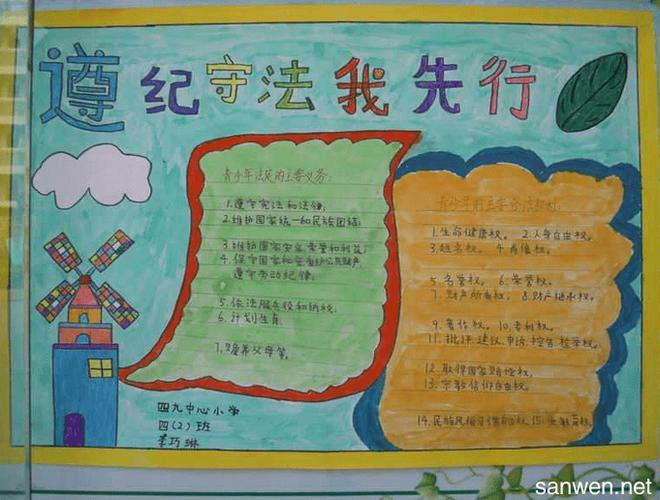 遵纪守法我先行
青少年法定的主要义务:
1.遵守宪法和法律;
2.维护国家统一和民族团结;
3.维护国家安全、荣誉和利益;
4.保守国家秘密爱护公共财产,
遵守劳动纪律.
5.依法服兵役和纳税.
6.计划生育.
7.赡养父母等.
青少年的主要合法权利:
1.生命健康权。 2.人身自由权。
3.姓名权。 4.肖像权。
5.名誉权。 6.荣誉权。
7.财产所有权。 8.财产继承权。
9.著作权。 10.专利权。
11.批评、建议、申诉、控告、检举权。
12.取得国家赔偿权。
13.宗教信仰自由权。
14.民族风俗习惯自由权. 15.受教育权.
四九中心小学
四(2)班
李巧琳
sanwen.net